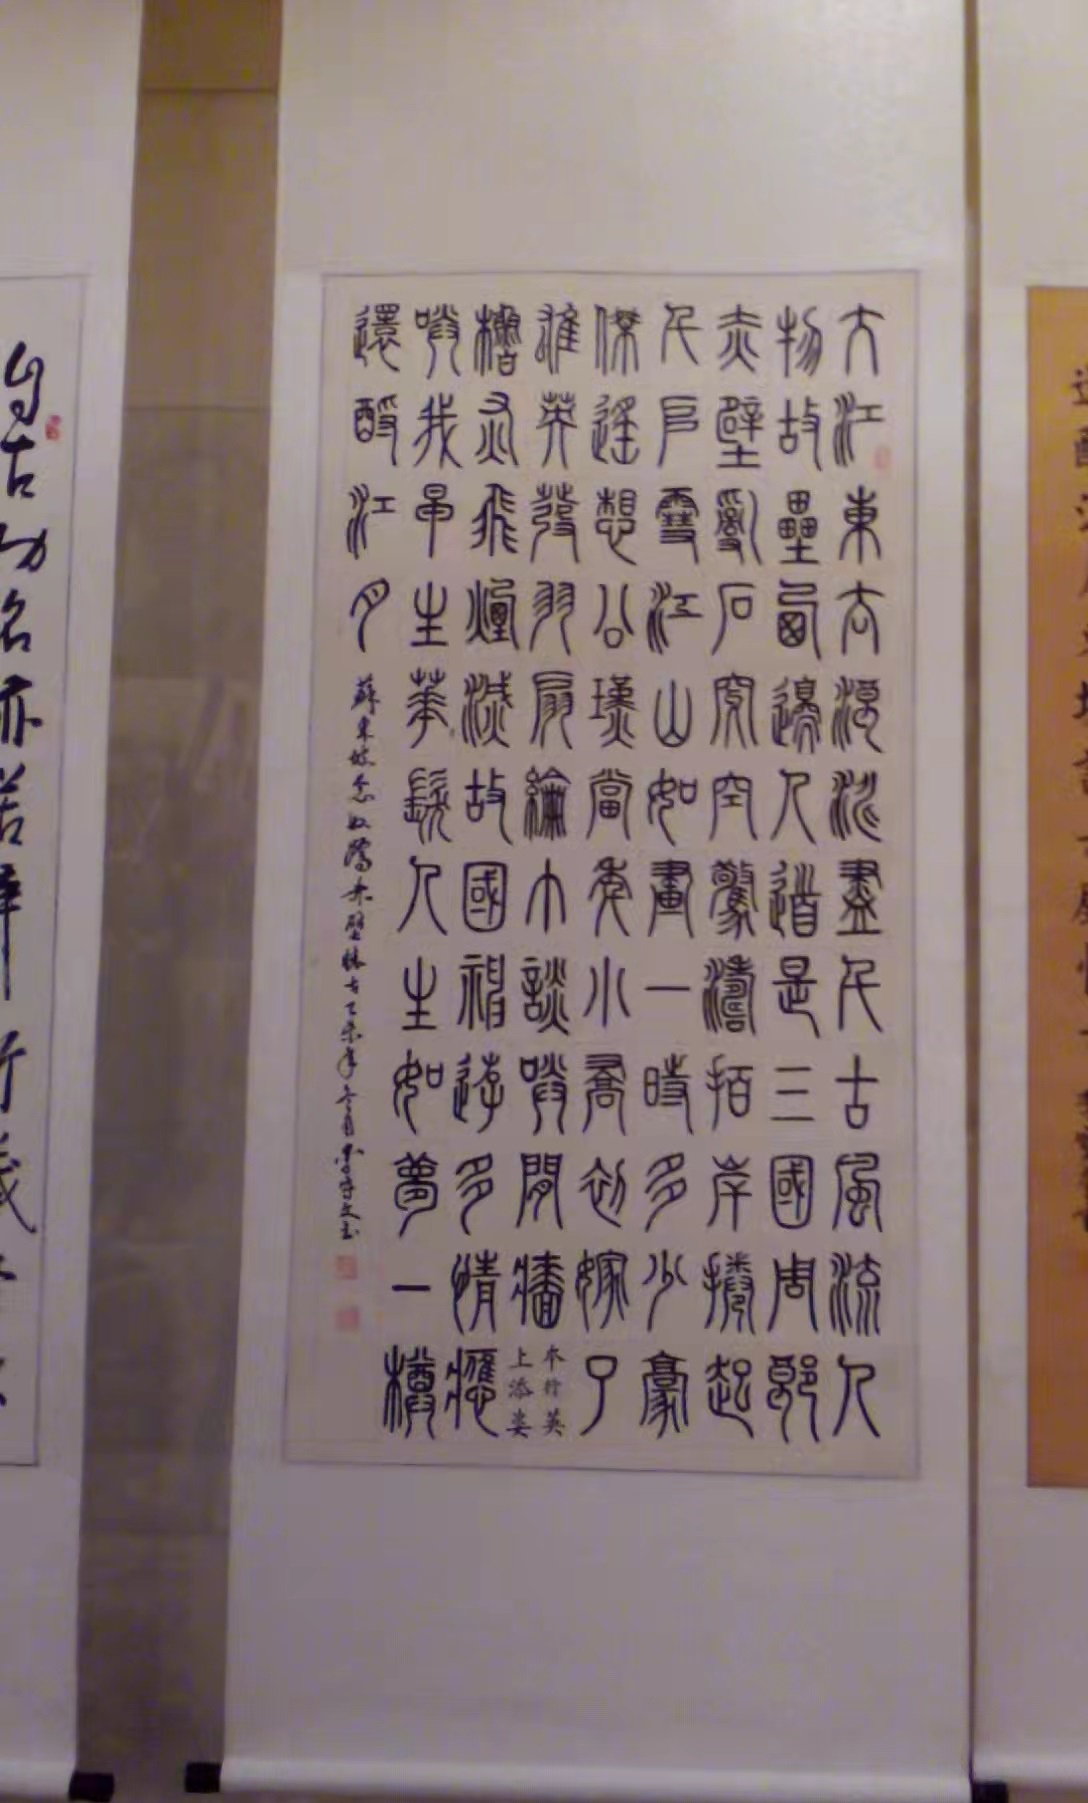 大江東去浪淘盡千古風流人
物故壘西邊人道是三國周郎
赤壁亂石穿空驚濤拍岸捲起
千堆雪江山如畫一時多少豪
傑遙想公瑾當年小喬初嫁了
雄英發羽扇綸巾談笑間牆
本行英
上添姿
櫓灰飛煙滅故國神遊多情應
笑我早生華髮人生如夢一樽
還酹江月
蘇東坡念奴嬌赤壁懷古乙未年冬月
自古功名亦苦辛行藏